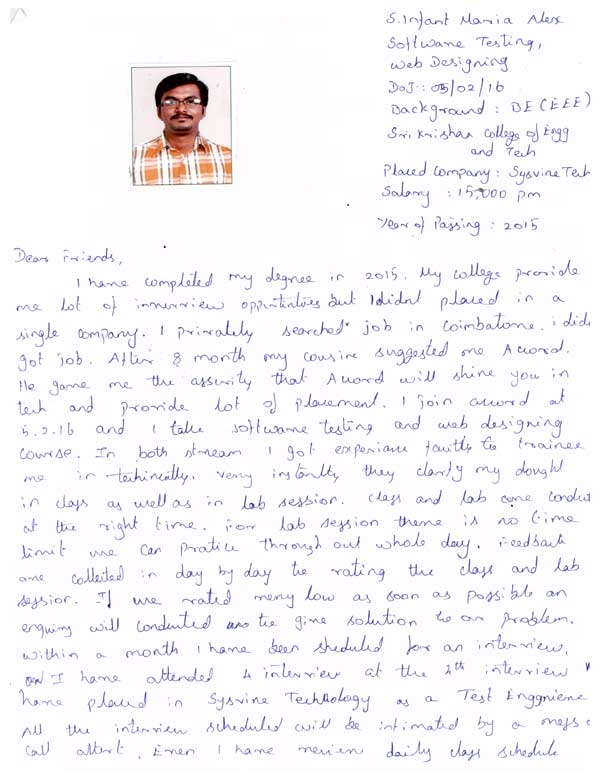 S.Infant Maria Alex
Software Testing,
Web Designing
DOJ : 05/02/16
Background : BE (EEE)
Sri Krishna College of Engg
and Tech
Placed Company : Sysvine Tech
Salary : 15,000 pm
Year of Passing : 2015
Dear Friends,
I have completed my degree in 2015. My college provide
me lot of innerview but I didnt placed in a
single company. I privately searched job in Coimbatore. i did
got job. After 8 month my cousine suggested me Aword.
He gave me the assurity that Aword will shine you in
tech and provide lot of placement. I join aword at
5.2.16 and I take software testing and web designing
course. In both stream I got experiance to trainee
me in techincally. very instantly they clarify my dought
in class as well as in lab session. class and lab are conduct
at the right time. For lab session there is no time
limit we can pratice through out whole day. Feedback
are collected in day by day to rating the class and lab
session. If we rated very low as soon as possible an
enquiry will conducted to give solution to our problem.
within a month I have been sheduled for an interview.
I have attended 4 interview at the 4th interview
have placed in Sysvine Techology as a Test Enggniene
All the interview scheduled will be intimated by a
call attert. Even I have daily class schedule